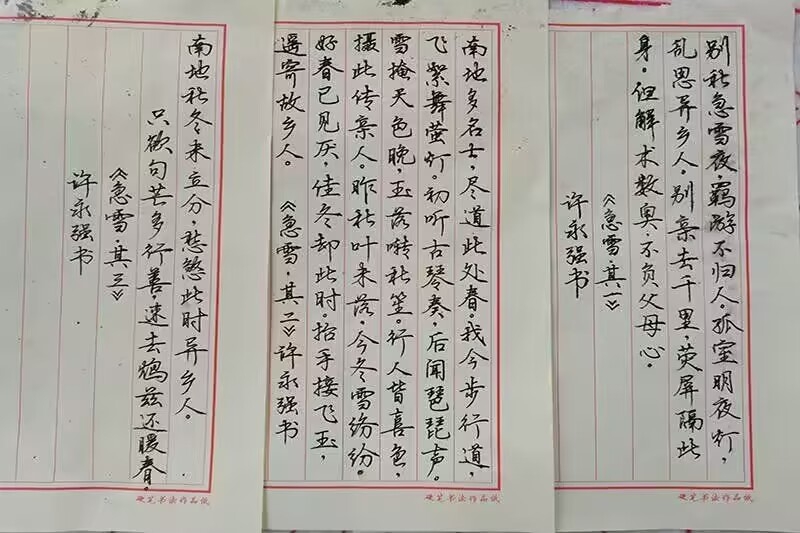 别秋急雪夜,羁游不归人。孤室明夜灯,
乱思异乡人。别亲去千里,荧屏隔此
身。但解术数奥,不负父母心。
《急雪·其一》
许永强书
硬笔书法作品纸
南地多名士,尽道此处春。我今步行道,
飞絮舞萤灯。初听古琴奏,后闻琵琶声。
雪掩天色晚,玉落啭秋笙。行人皆喜色,
摄此传亲人。昨秋叶未落,今冬雪纷纷。
好春已见厌,佳冬却此时。抬手接飞玉,
遥寄故乡人。 《急雪·其二》许永强书
硬笔书法作品纸
南地秋冬未立分,愁煞此时异乡人。
只欲句芒多行善,速去兹还暖春。
《急雪·其三》
许永强书
硬笔书法作品纸